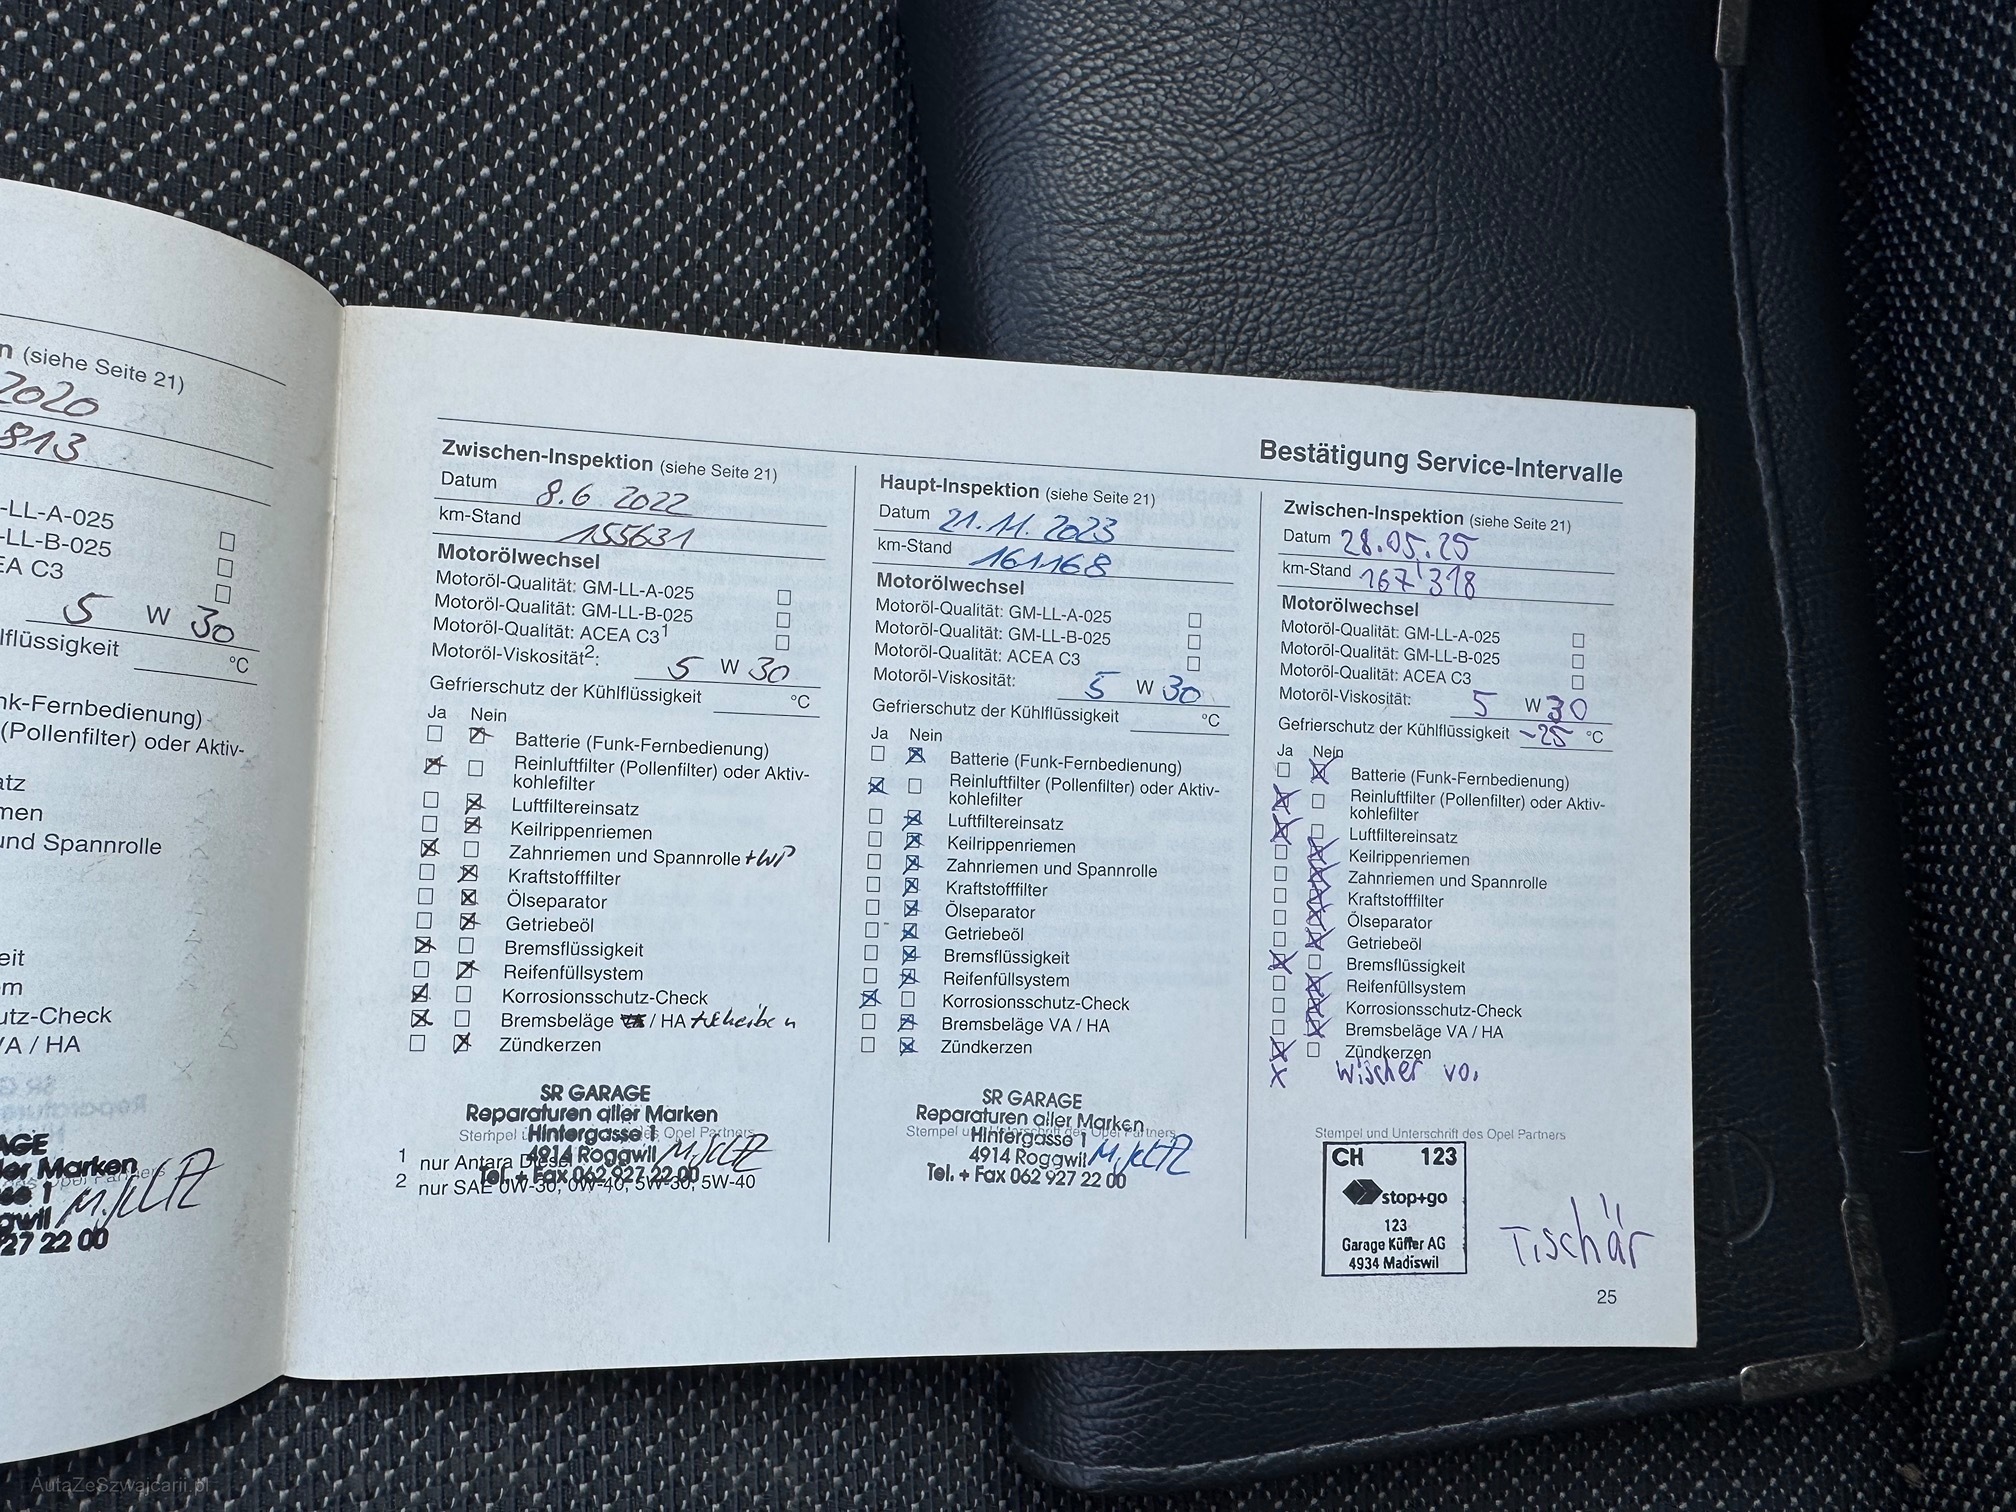 n (siehe Seite 21)
2020
813
-LL-A-025
-LL-B-025
EA C3
5 W 30
lflüssigkeit °C
nk-Fernbedienung)
(Pollenfilter) oder Aktiv-
atz
men
und Spannrolle
eit
m
utz-Check
/A / HA
AGE
ler Marken
se 1
gwil
27 22 00
Bestätigung Service-Intervalle
Zwischen-Inspektion (siehe Seite 21)
Datum 8.6 2022
km-Stand 155631
Motorölwechsel
Motoröl-Qualität: GM-LL-A-025
Motoröl-Qualität: GM-LL-B-025
Motoröl-Qualität: ACEA C3¹
Motoröl-Viskosität²: 5 W 30
Gefrierschutz der Kühlflüssigkeit °C
Ja Nein
Batterie (Funk-Fernbedienung)
Reinluftfilter (Pollenfilter) oder Aktiv-
kohlefilter
Luftfiltereinsatz
Keilrippenriemen
Zahnriemen und Spannrolle + WP
Kraftstofffilter
Ölseparator
Getriebeöl
Bremsflüssigkeit
Reifenfüllsystem
Korrosionsschutz-Check
Bremsbeläge VA / HA + scheiben
Zündkerzen
SR GARAGE
Reparaturen aller Marken
Hintergasse 1
4914 Roggwil
Tel. + Fax 062 927 22 00
Stempel und Unterschrift des Opel Partners
1 nur Antara Diesel
2 nur SAE 0W-30, 0W-40, 5W-30, 5W-40
Haupt-Inspektion (siehe Seite 21)
Datum 21.11.2023
km-Stand 161168
Motorölwechsel
Motoröl-Qualität: GM-LL-A-025
Motoröl-Qualität: GM-LL-B-025
Motoröl-Qualität: ACEA C3
Motoröl-Viskosität: 5 W 30
Gefrierschutz der Kühlflüssigkeit °C
Ja Nein
Batterie (Funk-Fernbedienung)
Reinluftfilter (Pollenfilter) oder Aktiv-
kohlefilter
Luftfiltereinsatz
Keilrippenriemen
Zahnriemen und Spannrolle
Kraftstofffilter
Ölseparator
Getriebeöl
Bremsflüssigkeit
Reifenfüllsystem
Korrosionsschutz-Check
Bremsbeläge VA / HA
Zündkerzen
SR GARAGE
Reparaturen aller Marken
Stempel und Unterschrift des Opel Partners
Hintergasse 1
4914 Roggwil
Tel. + Fax 062 927 22 00
Zwischen-Inspektion (siehe Seite 21)
Datum 28.05.25
km-Stand 167'318
Motorölwechsel
Motoröl-Qualität: GM-LL-A-025
Motoröl-Qualität: GM-LL-B-025
Motoröl-Qualität: ACEA C3
Motoröl-Viskosität: 5 W 30
Gefrierschutz der Kühlflüssigkeit -25 °C
Ja Nein
Batterie (Funk-Fernbedienung)
Reinluftfilter (Pollenfilter) oder Aktiv-
kohlefilter
Luftfiltereinsatz
Keilrippenriemen
Zahnriemen und Spannrolle
Kraftstofffilter
Ölseparator
Getriebeöl
Bremsflüssigkeit
Reifenfüllsystem
Korrosionsschutz-Check
Bremsbeläge VA / HA
Zündkerzen
x Wischer vo.
Stempel und Unterschrift des Opel Partners
CH 123
stop+go
123
Garage Küffer AG
4934 Madiswil
Tischär
25
AutaZeSzwajcarii.pl